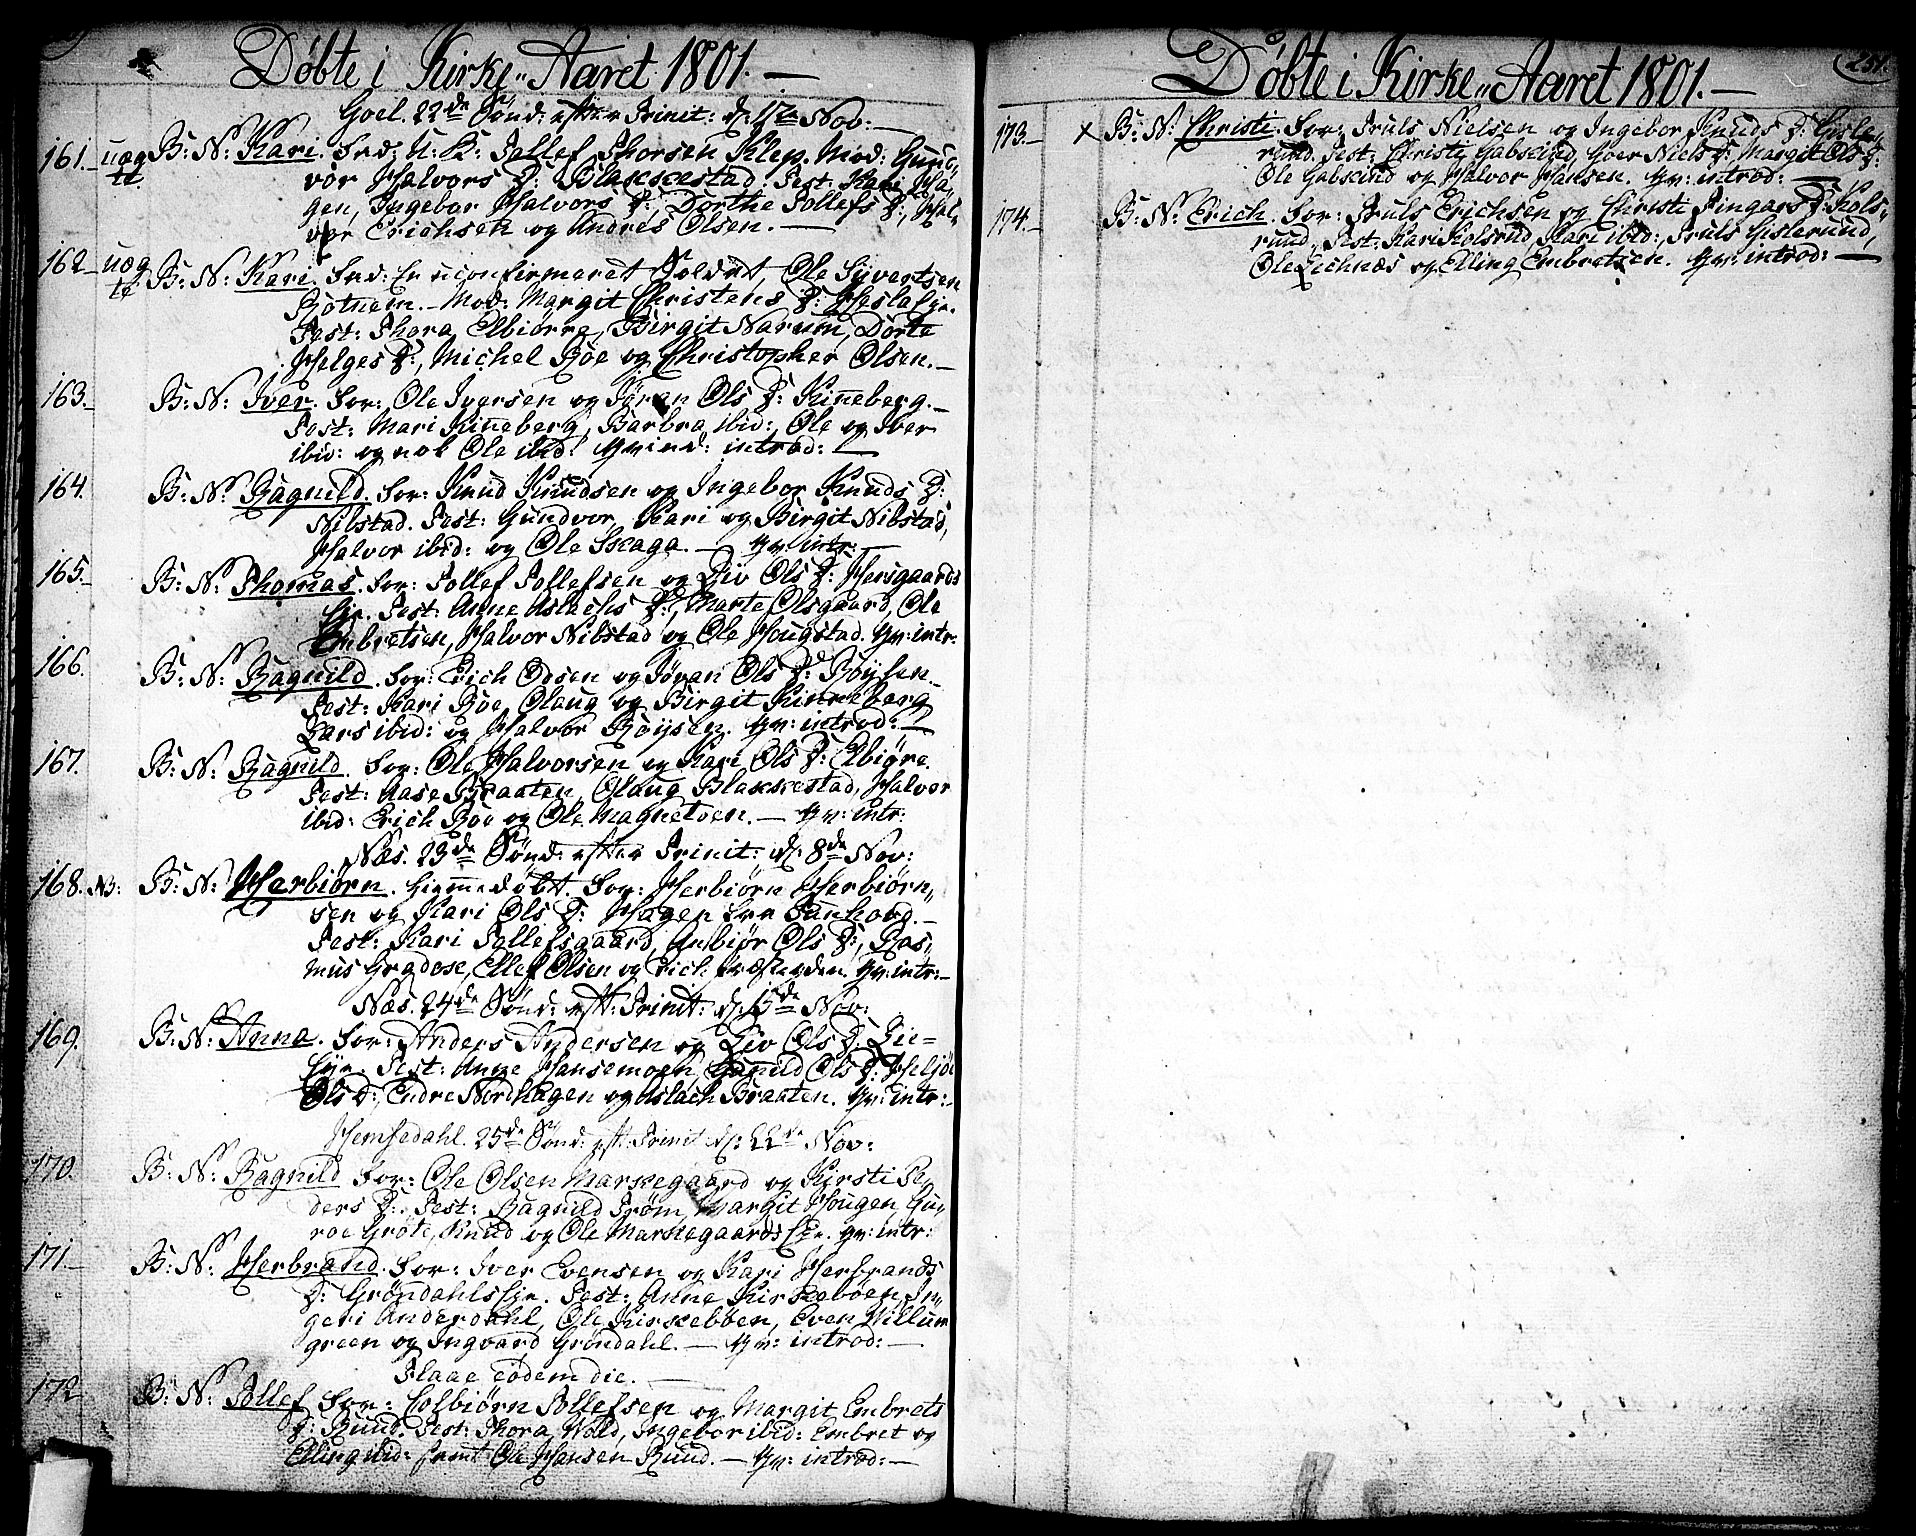 Døbte i Kirke-Aaret 1801. —
Goel. 22de Sønd: efter Trinit: d: 1ste Nov: —
161. uæg B: N: Kari. Fad: U: K: Tollef Thorsen Klep. Mod: Gun-
te. vor Halvors D: Blakkestad. Test: Kari Ha-
gen, Ingebor Halvors D:, Dorthe Tollefs D:, Hal-
vor Erichsen og Andres Olsen. —
162. uæg B: N: Kari. Fad: En uconfirmeret Soldat, Ole Syvertsen
te Rotnem. — Mod: Margit Christens D: Hesla Eje.
Test: Thora Elbiørre, Birgit Narum, Dorte
Helges D:, Michel Røe og Christopher Olsen. —
163. B: N: Iver. For: Ole Iversen og Jøran Ols D: Kinneberg. —
Test: Mari Kinneberg, Barbra ibid:, Ole og Iver
ibid: og nok Ole ibid: Qvind: introd: —
164. B: N: Ragnild. For: Knud Knudsen og Ingebor Knuds D:
Nibstad. Test: Gundvor, Kari og Birgit Nibstad,
Halvor ibid: og Ole Skaga. — Qv: intr: —
165. B: N: Thomas. For: Tollef Tollefsen og Liv Ols D: Hersgaards
Eje. Test: Anne Aslachs D:, Marte Olsgaard, Ole
Embretsen, Halvor Nibstad og Ole Hougstad. Qv: intr:
166. B: N: Ragnild. For: Erich Odsen og Jøran Ols D: Røysen. —
Test: Kari Røe, Olaug og Birgit Kinneberg
Lars ibid: og Halvor Røysen. Qv: introd: —
167. B: N: Ragnild. For: Ole Halvorsen og Kari Ols D: Elbiøre.
Test: Aase Braaten, Olaug Blakkestad, Halvor
ibid: Erich Roe og Ole Magnetøen. — Qv: intr:
Næs. 23de Sønd: efter Trinit: d: 8de Nov:
168. NB: B: N: Herbiørn. hiemmedøbt. For: Herbiørn Herbiørn-
sen og Kari Ols D: Hagen fra Tunhovd. —
Test: Kari Tollefsgaard, Anbiør Ols D:, Ras-
mus Gradose, Ellef Olsen og Erich Qv: intr: —
Næs. 24de Sønd: eft: Trinit: d: 15de Nov:
169. B: N: Anne. For: Anders Andersen og Liv Ols D: Lie-
Eje. Test: Anne Hansemoen, Gunild Ols D: Heljøe
Ols D:, Endre Nordhagen og Aslach Braaten. Qv: intr: —
Hemsedahl. 25de Sønd: eft: Trinit d: 22de Nov:
170. B: N: Ragnild For: Ole Olsen Markegaard og Kirsti Pe-
ders D:. Test: Ragnild Trøm, Margit Hougen, Gu-
roe Grøte, Knud og Ole Markegaards Eje. Qv: intr:
171. B: N: Herbrand. For: Iver Evensen og Kari Herbrands
D: Grøndahls Eje. Test: Anne Kirkebøen, In-
geri Anderdahl, Ole Kirkebøen, Even Villum
green og Ingvard Grøndahl. — Qv: introd: —
Flaae eodem die. —
172 B: N: Tollef For: Colbiørn Tollefsen og Margit Embrets
D: Ruud. Test: Thora Wold, Ingebor ibid: Embret og
Elling ibid: samt Ole Hansen Ruud. — Qv: introd: —
Døbte i Kirke-Aaret 1801. —
251.
173. x B: N: Christi. For: Truls Nielsen og Ingebor Knuds D: Gisle-
rud. Test: Christi Gabskind, Goer Niels D:, Margit Ols D:
Ole Gabskind og Halvor Hansen. Qv: introd: —
174. B: N: Erich. For: Truls Erichsen og Christi Fingars D: Kols-
rund. Test: Kari Kolsrud, Kari ibid:, Truls Gislerund,
Ole Eichnæs og Elling Embretsen. Qv: introd: —